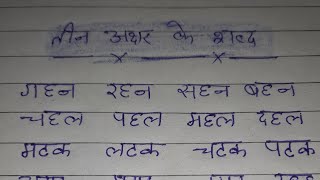 तीन अक्षर के शब्द
गहन रहन सहन बहन
चहल पहल महल दहल
मटक लटक चटक पटक